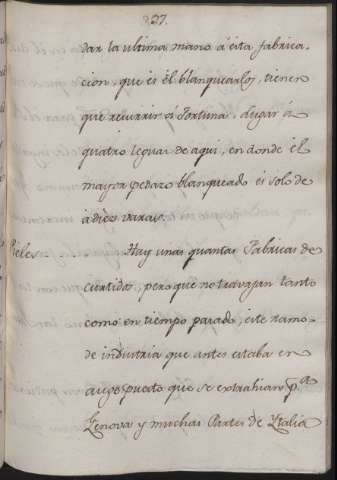 227.
dar la ultima mano á esta fabrica-
cion, que es el blanquearlos, tienen
que recurrir á Fortuna, lugar á
quatro leguas de aqui, en donde el
mayor pedazo blanqueado es solo de
á diez varas.
Pieles Hay unas quantas Fabricas de
curtido, pero que no travajan tanto
como en tiempo pasado, este ramo
de industria que antes estaba en
auge puesto que se extrahian pª
Genova y muchas Partes de Italia